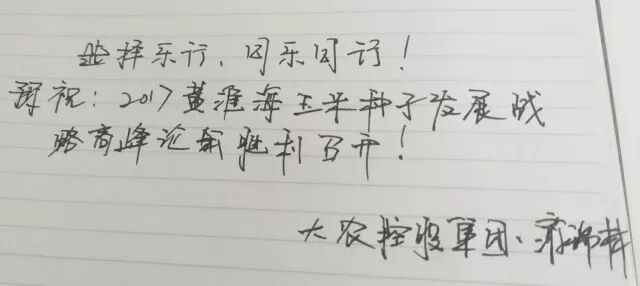 选择乐行,同乐同行!
预祝:2017黄淮海玉米种子发展战
略高峰论坛胜利召开!
大农控股集团、